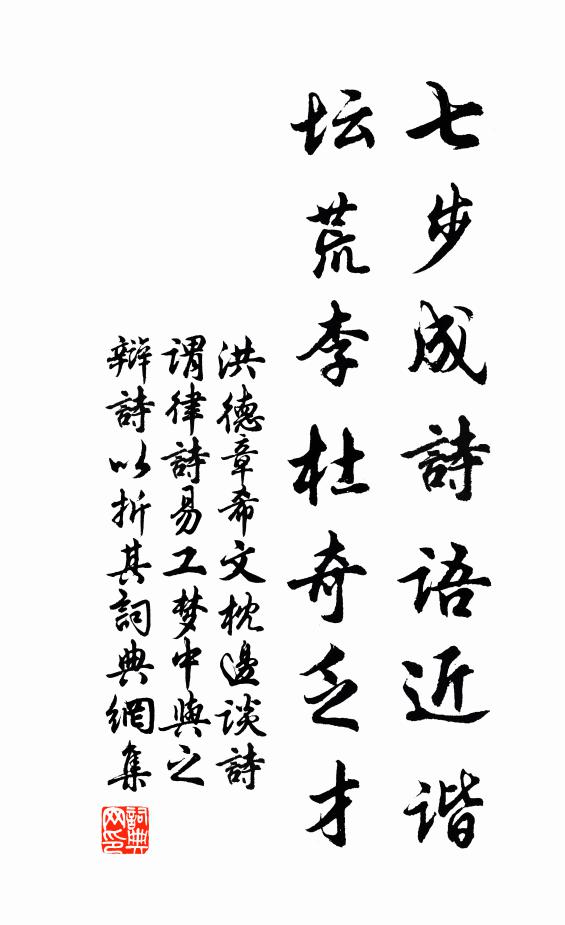 七步成詩語近谐
坛荒李杜奇乏才
洪德章希文枕邊谈詩
谓律詩易工梦中與之
辩詩以折其詞典網集
詞典网印